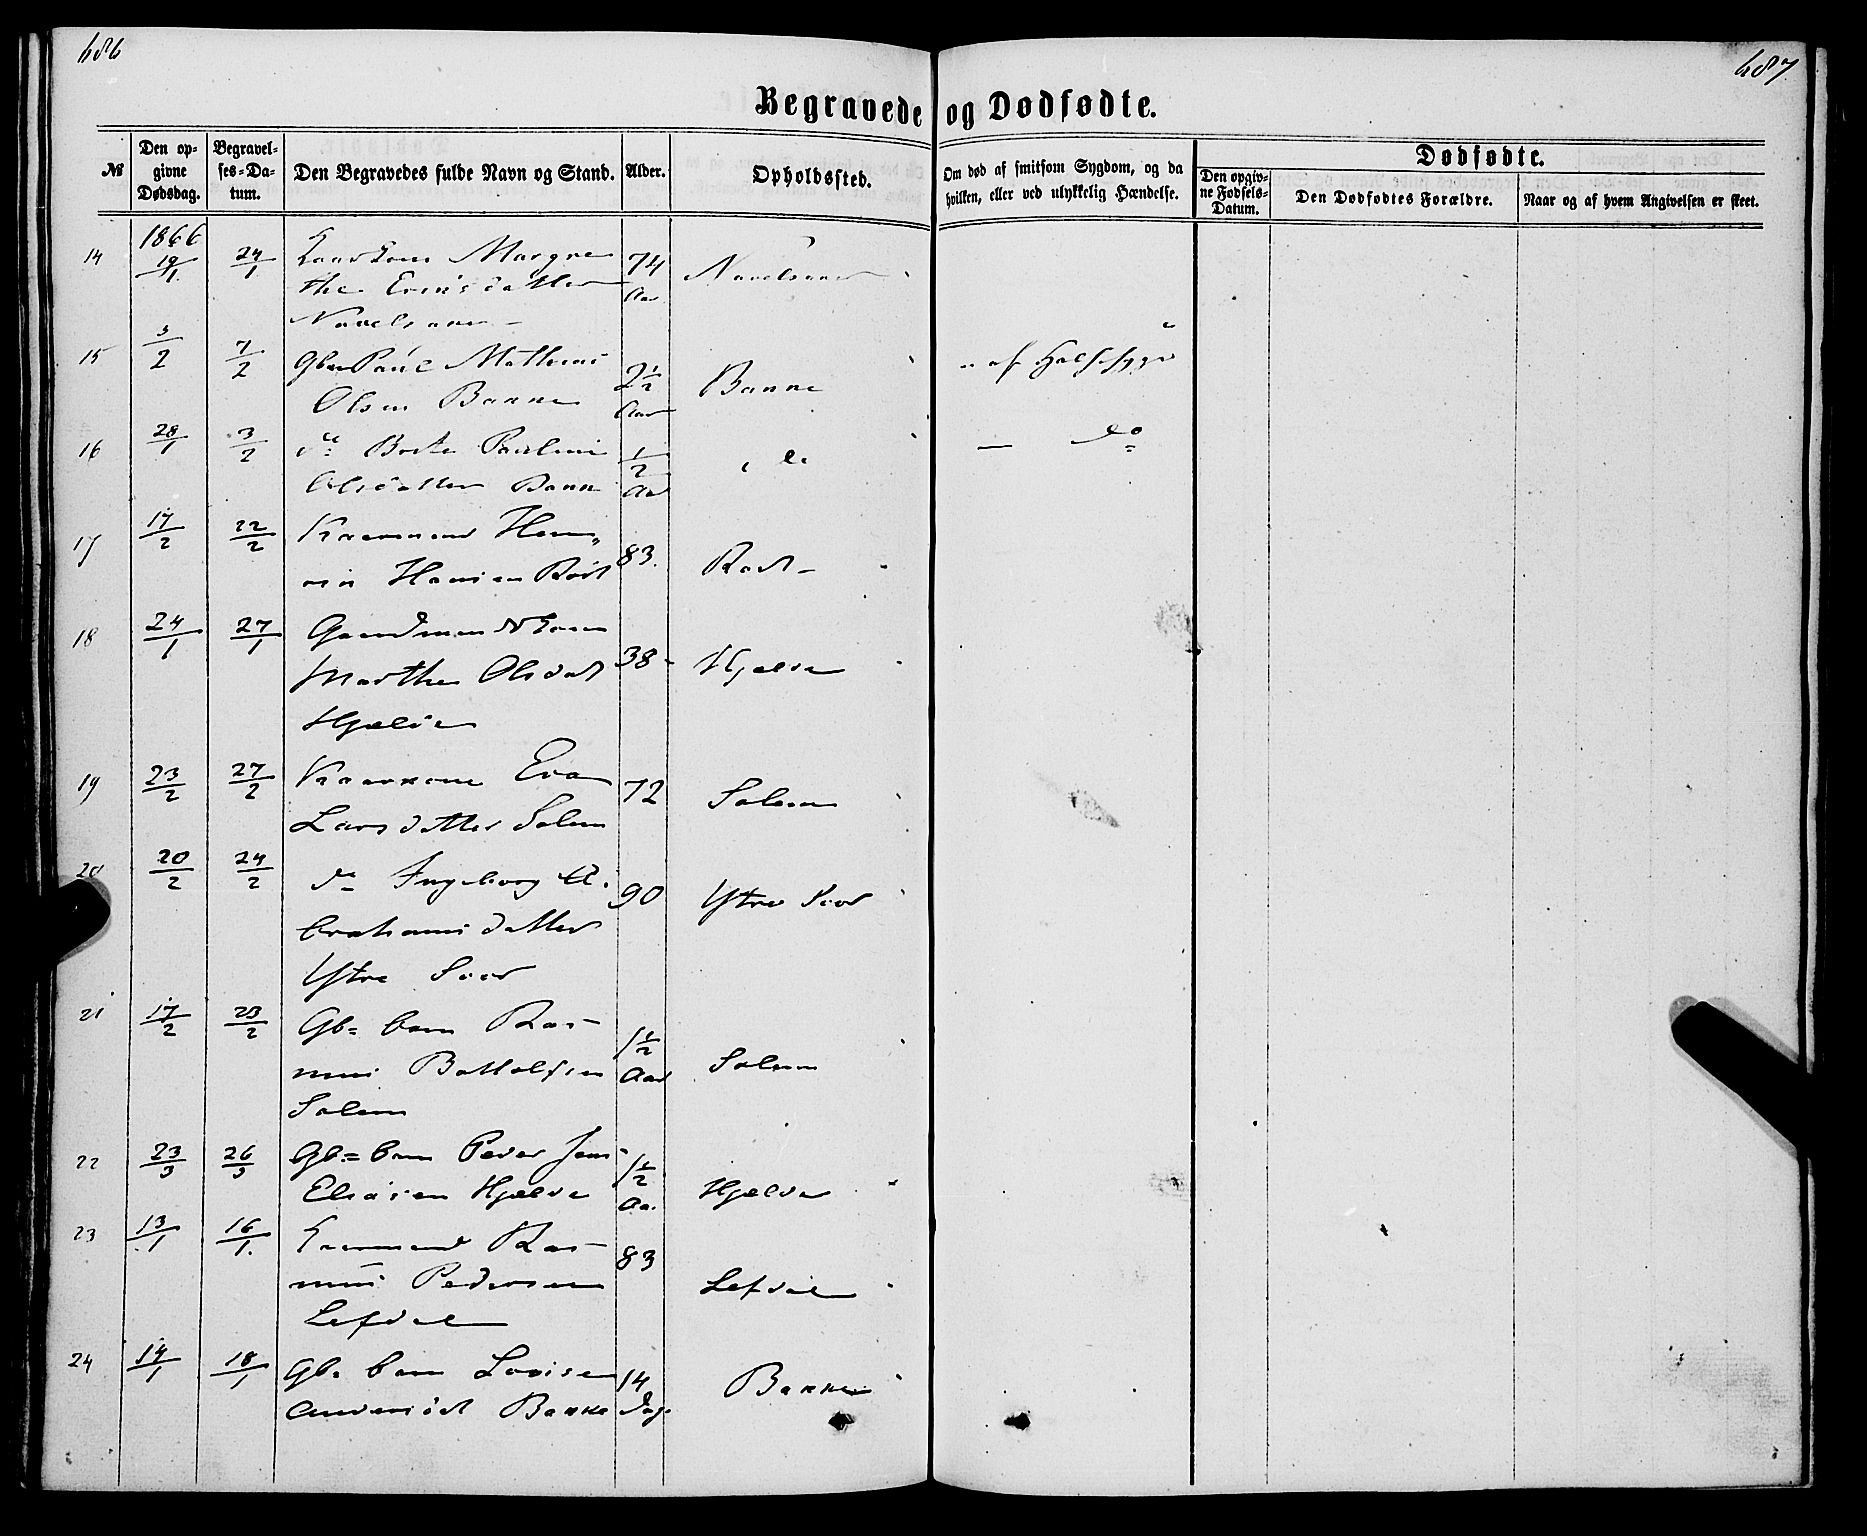 686
687
Begravede og Dødfødte.
№
Den opgivne Dødsdag.
Begravelses-Datum.
Den Begravedes fulde Navn og Stand.
Alder.
Opholdssted.
Om død af smitsom Sygdom, og da hvilken, eller ved ulykkelig Hændelse.
Dødfødte.
Den opgivne Fødsels-Datum.
Den Dødfødtes Forældre.
Naar og af hvem Angivelsen er skeet.
1866
14 19/1 24/1 Kaarkone Margre 74 Navelsaker
the Ensdatter Aar
Navelsaker
15 3/2 7/2 Gbn Paul Mathias 2½ Bakke af Halssyge
Olsen Bakke Aar
16 28/1 3/2 do Berte Pauline ½ do — do
Olsdatter Bakke Aar
17 17/2 22/2 Kaarmand Han 83. Rød
sen Hansen Rød
18 24/1 27/1 Gaardmandskone 38 Hjelle
Marthe Olsdat
Hjelle
19 23/2 27/2 Kaarkone Eva 72 Solem
Larsdatter Solem
20 20/2 24/2 do Ingeborg A. 90 Ytre
brahamsdatter
Ytre
21 17/2 23/2 Gb= barn Ras 1½ Solem
mus Bottolfsen Aar
Solem
22 23/3 26/3 Gb= barn Peder Jens 1½ Hjelle
Eliasen Hjelle Aa.
23 13/1 16/1. Kaarmand Ras 83 Lefdal
mus Pedersen
Lefdal
24 14/1 18/1 Gb. barn Lovise 14 Bakke
Andersdt Bakke Dag.